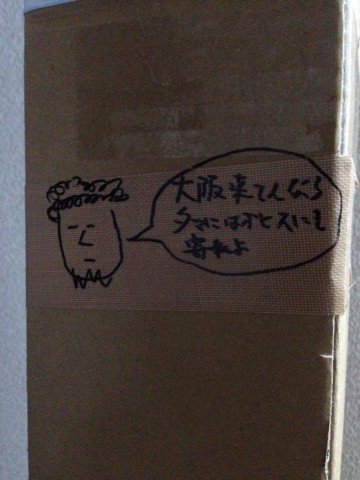 大阪来てんなら
タマにはオヒスにも
寄れよ